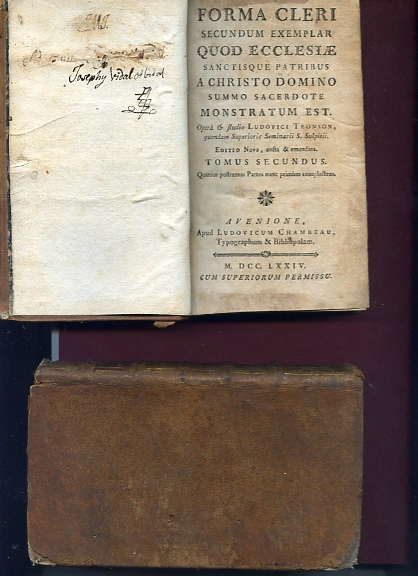 Josephy Vidal
FORMA CLERI
SECUNDUM EXEMPLAR
QUOD ECCLESIÆ
SANCTISQUE PATRIBUS
A CHRISTO DOMINO
SUMMO SACERDOTE
MONSTRATUM EST.
Operâ & studio LUDOVICI TRONSON,
quondam Superioris Seminarii S. Sulpitii.
EDITIO NOVA, aucta & emendata.
TOMUS SECUNDUS.
Quatuor postremas Partes nunc primùm complectens.
AVENIONE,
Apud LUDOVICUM CHAMBEAU,
Typographum & Bibliopolam.
M. DCC. LXXIV.
CUM SUPERIORUM PERMISSU.